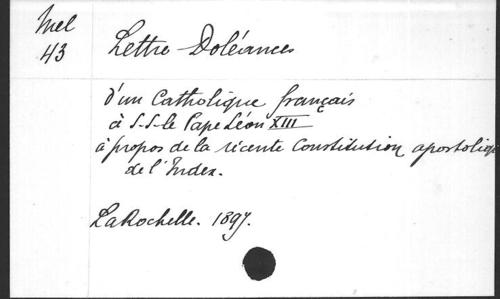 Mel
43
Lettre-Doléances
d'un Catholique français
à S.S. le Pape Léon XIII
à propos de la récente Constitution apostoliq
de l'Index.
La Rochelle. 1897.